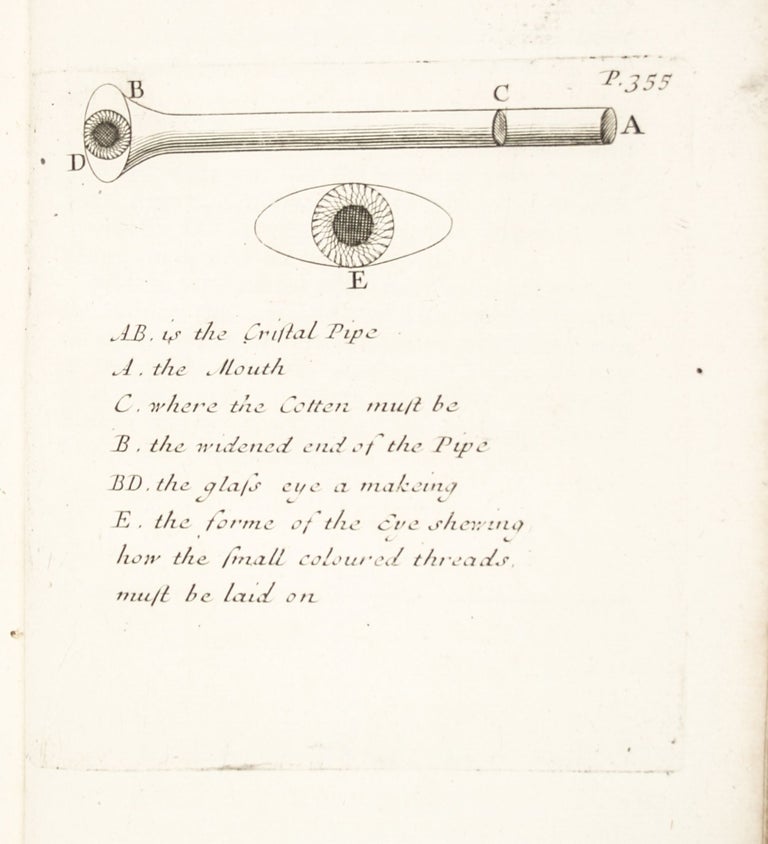 P. 355
B
C
A
D
E
AB. is the Criſtal Pipe
A. the Mouth
C. where the Cotten muſt be
B. the widened end of the Pipe
BD. the glaſs eye a makeing
E. the forme of the Eye shewing
how the ſmall coloured threads.
muſt be laid on